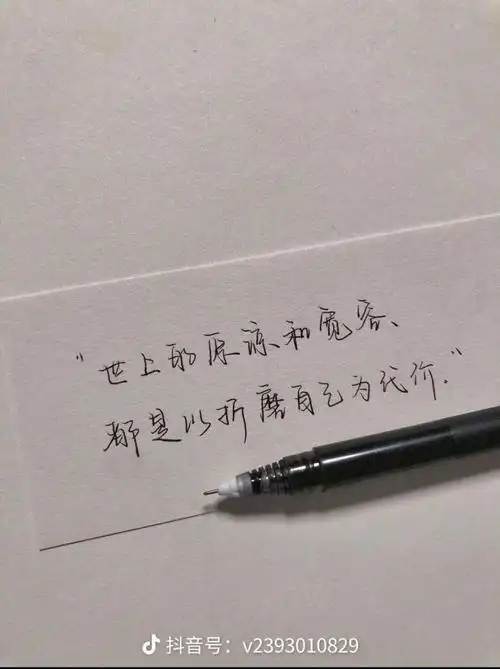 "世上的原谅和宽容、
都是以折磨自己为代价."
抖音号：v2393010829